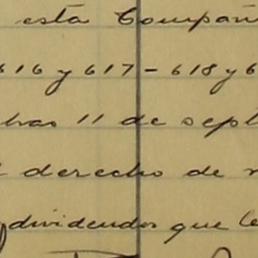 esta Compañ
616 y 617 - 618 y 6
11 de sept
derecho de
dividendos que le